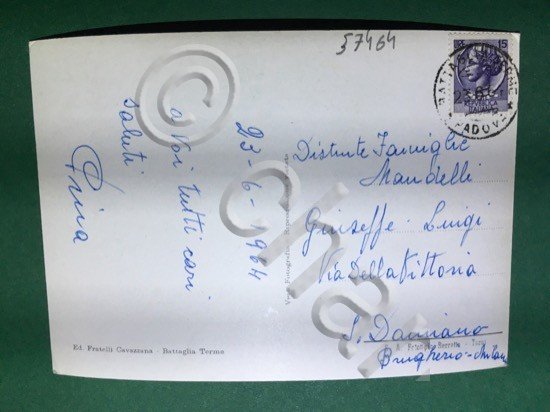 57464
£ 15
BATTAGLIA TERME
PADOVA
23-6-1964
a Voi tutti cari
saluti
Pina
Distinte Famiglie
Mandelli
Giuseffe - Luigi
Via Della Vittoria
S. Damiano
Brugherio - Milano
Vera Fotografia
Ed. Fratelli Cavazzana - Battaglia Terme
© char